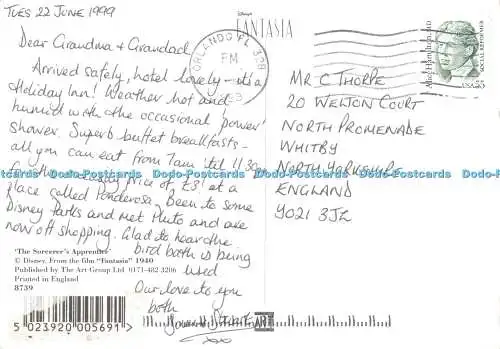 TUES 22 JUNE 1999
Dear Grandma + Grandad,
Arrived safely, hotel lovely - its a
Holiday Inn! Weather hot and
humid with the occasional 'power'
shower. Superb buffet breakfasts -
all you can eat from 7am 'til 11.30am
price of £3! at a
place called Ponderosa. Been to some
Disney Parks and met Pluto and are
now off shopping. Glad to hear the
bird bath is being
used
Our love to you
both
xox
'The Sorcerer's Apprentice'
© Disney. From the film "Fantasia" 1940
Published by The Art Group Ltd 0171-482 3206
Printed in England
8739
5 023920 005691 >
Disney
FANTASIA
ORLANDO FL 328
PM
USA
MR C THORPE
20 WELTON COURT
NORTH PROMENADE
WHITBY
NORTH YORKSHIRE
ENGLAND
YO21 3JZ
ART
Dodo-Postcards Dodo-Postcards Dodo-Postcards Dodo-Postcards Dodo-Postcards